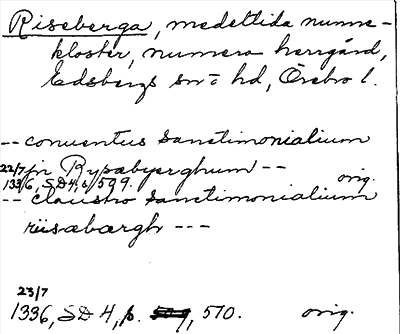 Riseberga, medeltida nunne-
kloster, numera herrgård,
Edsbergs sn o hd, Örebro l.
-- conuentus sanctimonialium
in Rysæbyærghum --
22/7
1336, SD 4, s. 509. orig.
-- claustro sanctimonialium
riisæbærgh ---
23/7
1336, SD 4, p. 509, 510. orig.